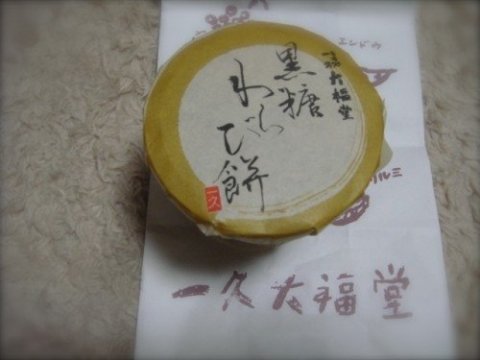 一久大福堂
黒糖
わらび餅
一久
エンドウ
クルミ
一久大福堂